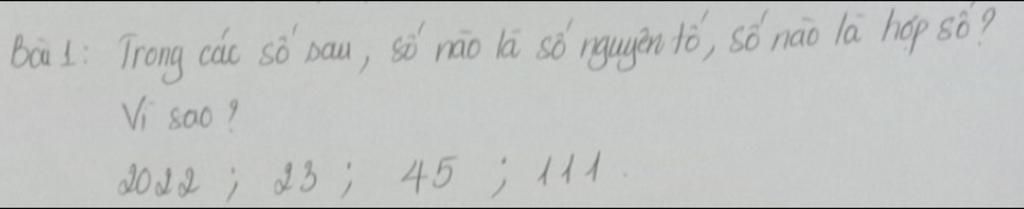 Bài 1: Trong các số sau, số nào là số nguyên tố, số nào là hợp số?
Vì sao?
2022 ; 23 ; 45 ; 111.